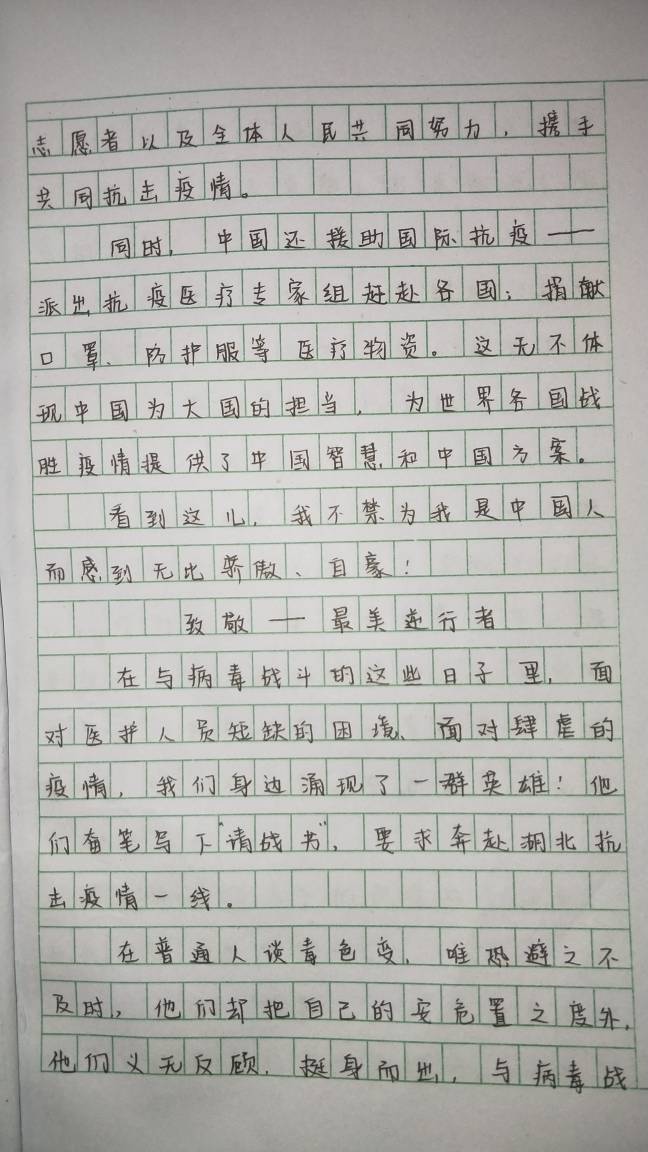 志愿者以及全体人民共同努力，携手
共同抗击疫情。
同时，中国还援助国际抗疫——
派出抗疫医疗专家组赶赴各国；捐献
口罩、防护服等医疗物资。这无不体
现中国为大国的担当，为世界各国战
胜疫情提供了中国智慧和中国方案。
看到这儿，我不禁为我是中国人
而感到无比骄傲、自豪！
致敬——最美逆行者
在与病毒战斗的这些日子里，面
对医护人员短缺的困境、面对肆虐的
疫情，我们身边涌现了一群英雄！他
们奋笔写下“请战书”，要求奔赴湖北抗
击疫情一线。
在普通人谈毒色变，唯恐避之不
及时，他们却把自己的安危置之度外，
他们义无反顾，挺身而出，与病毒战